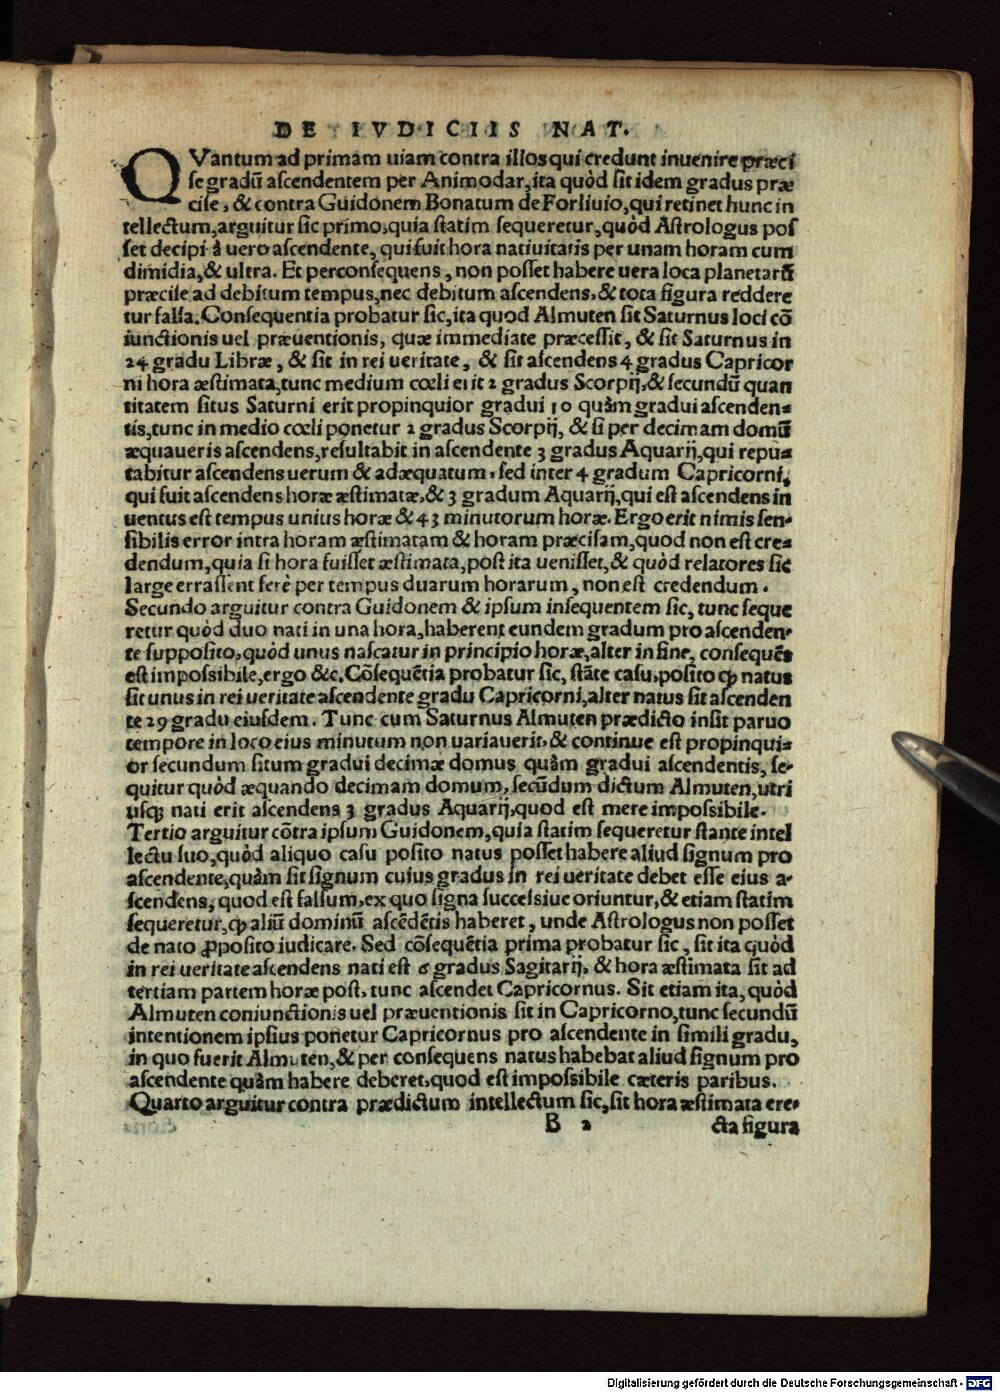 DE IVDICIIS NAT.
QVantum ad primam uiam contra illos qui credunt inuenire præci
se gradũ ascendentem per Animodar, ita quòd sit idem gradus præ
cise, & contra Guidonem Bonatum de Forliuio, qui retinet hunc in
tellectum, arguitur sic primo, quia statim sequeretur, quòd Astrologus pos
set decipi à uero ascendente, qui fuit hora natiuitatis per unam horam cum
dimidia, & ultra. Et perconsequens, non posset habere uera loca planetarũ
præcise ad debitum tempus, nec debitum ascendens, & tota figura reddere
tur falsa. Consequentia probatur sic, ita quod Almuten sit Saturnus loci cõ
iunctionis uel præuentionis, quæ immediate præcessit, & sit Saturnus in
24 gradu Libræ, & sit in rei ueritate, & sit ascendens 4 gradus Capricor
ni hora æstimata, tunc medium cœli erit 2 gradus Scorpij, & secundũ quan
titatem situs Saturni erit propinquior gradui 10 quàm gradui ascenden=
tis, tunc in medio cœli ponetur 2 gradus Scorpij, & si per decimam domũ
æquaueris ascendens, resultabit in ascendente 3 gradus Aquarij, qui repu=
tabitur ascendens uerum & adæquatum. sed inter 4 gradum Capricorni,
qui fuit ascendens horæ æstimatæ, & 3 gradum Aquarij, qui est ascendens in
uentus est tempus unius horæ & 43 minutorum horæ. Ergo erit nimis sen=
sibilis error intra horam æstimatam & horam præcisam, quod non est cre=
dendum, quia si hora fuisset æstimata, post ita uenisset, & quòd relatores sic
large errassent ferè per tempus duarum horarum, non est credendum.
Secundo arguitur contra Guidonem & ipsum insequentem sic, tunc seque
retur quòd duo nati in una hora, haberent eundem gradum pro ascenden=
te supposito, quòd unus nascatur in principio horæ, alter in fine, consequẽs
est impossibile, ergo &c. Cõsequẽtia probatur sic, stãte casu, posito ꝙ natus
sit unus in rei ueritate ascendente gradu Capricorni, alter natus sit ascenden
te 29 gradu eiusdem. Tunc cum Saturnus Almuten prædicto insit paruo
tempore in loco eius minutum non uariauerit, & continue est propinqui=
or secundum situm gradui decimæ domus quàm gradui ascendentis, se=
quitur quòd æquando decimam domum, secũdum dictum Almuten, utri
usq; nati erit ascendens 3 gradus Aquarij, quod est mere impossibile.
Tertio arguitur cõtra ipsum Guidonem, quia statim sequeretur stante intel
lectu suo, quòd aliquo casu posito natus posset habere aliud signum pro
ascendente, quàm sit signum cuius gradus in rei ueritate debet esse eius a=
scendens, quod est falsum, ex quo signa successiue oriuntur, & etiam statim
sequeretur, ꝙ aliũ dominũ ascẽdẽtis haberet, unde Astrologus non posset
de nato ꝓposito iudicare. Sed cõsequẽtia prima probatur sic, sit ita quòd
in rei ueritate ascendens nati est 6 gradus Sagitarij, & hora æstimata sit ad
tertiam partem horæ post, tunc ascendet Capricornus. Sit etiam ita, quòd
Almuten coniunctionis uel præuentionis sit in Capricorno, tunc secundũ
intentionem ipsius ponetur Capricornus pro ascendente in simili gradu,
in quo fuerit Almuten, & per consequens natus habebat aliud signum pro
ascendente quàm habere deberet, quod est impossibile cæteris paribus.
Quarto arguitur contra prædictum intellectum sic, sit hora æstimata ere=
B 2 cta figura
Digitalisierung gefördert durch die Deutsche Forschungsgemeinschaft - DFG